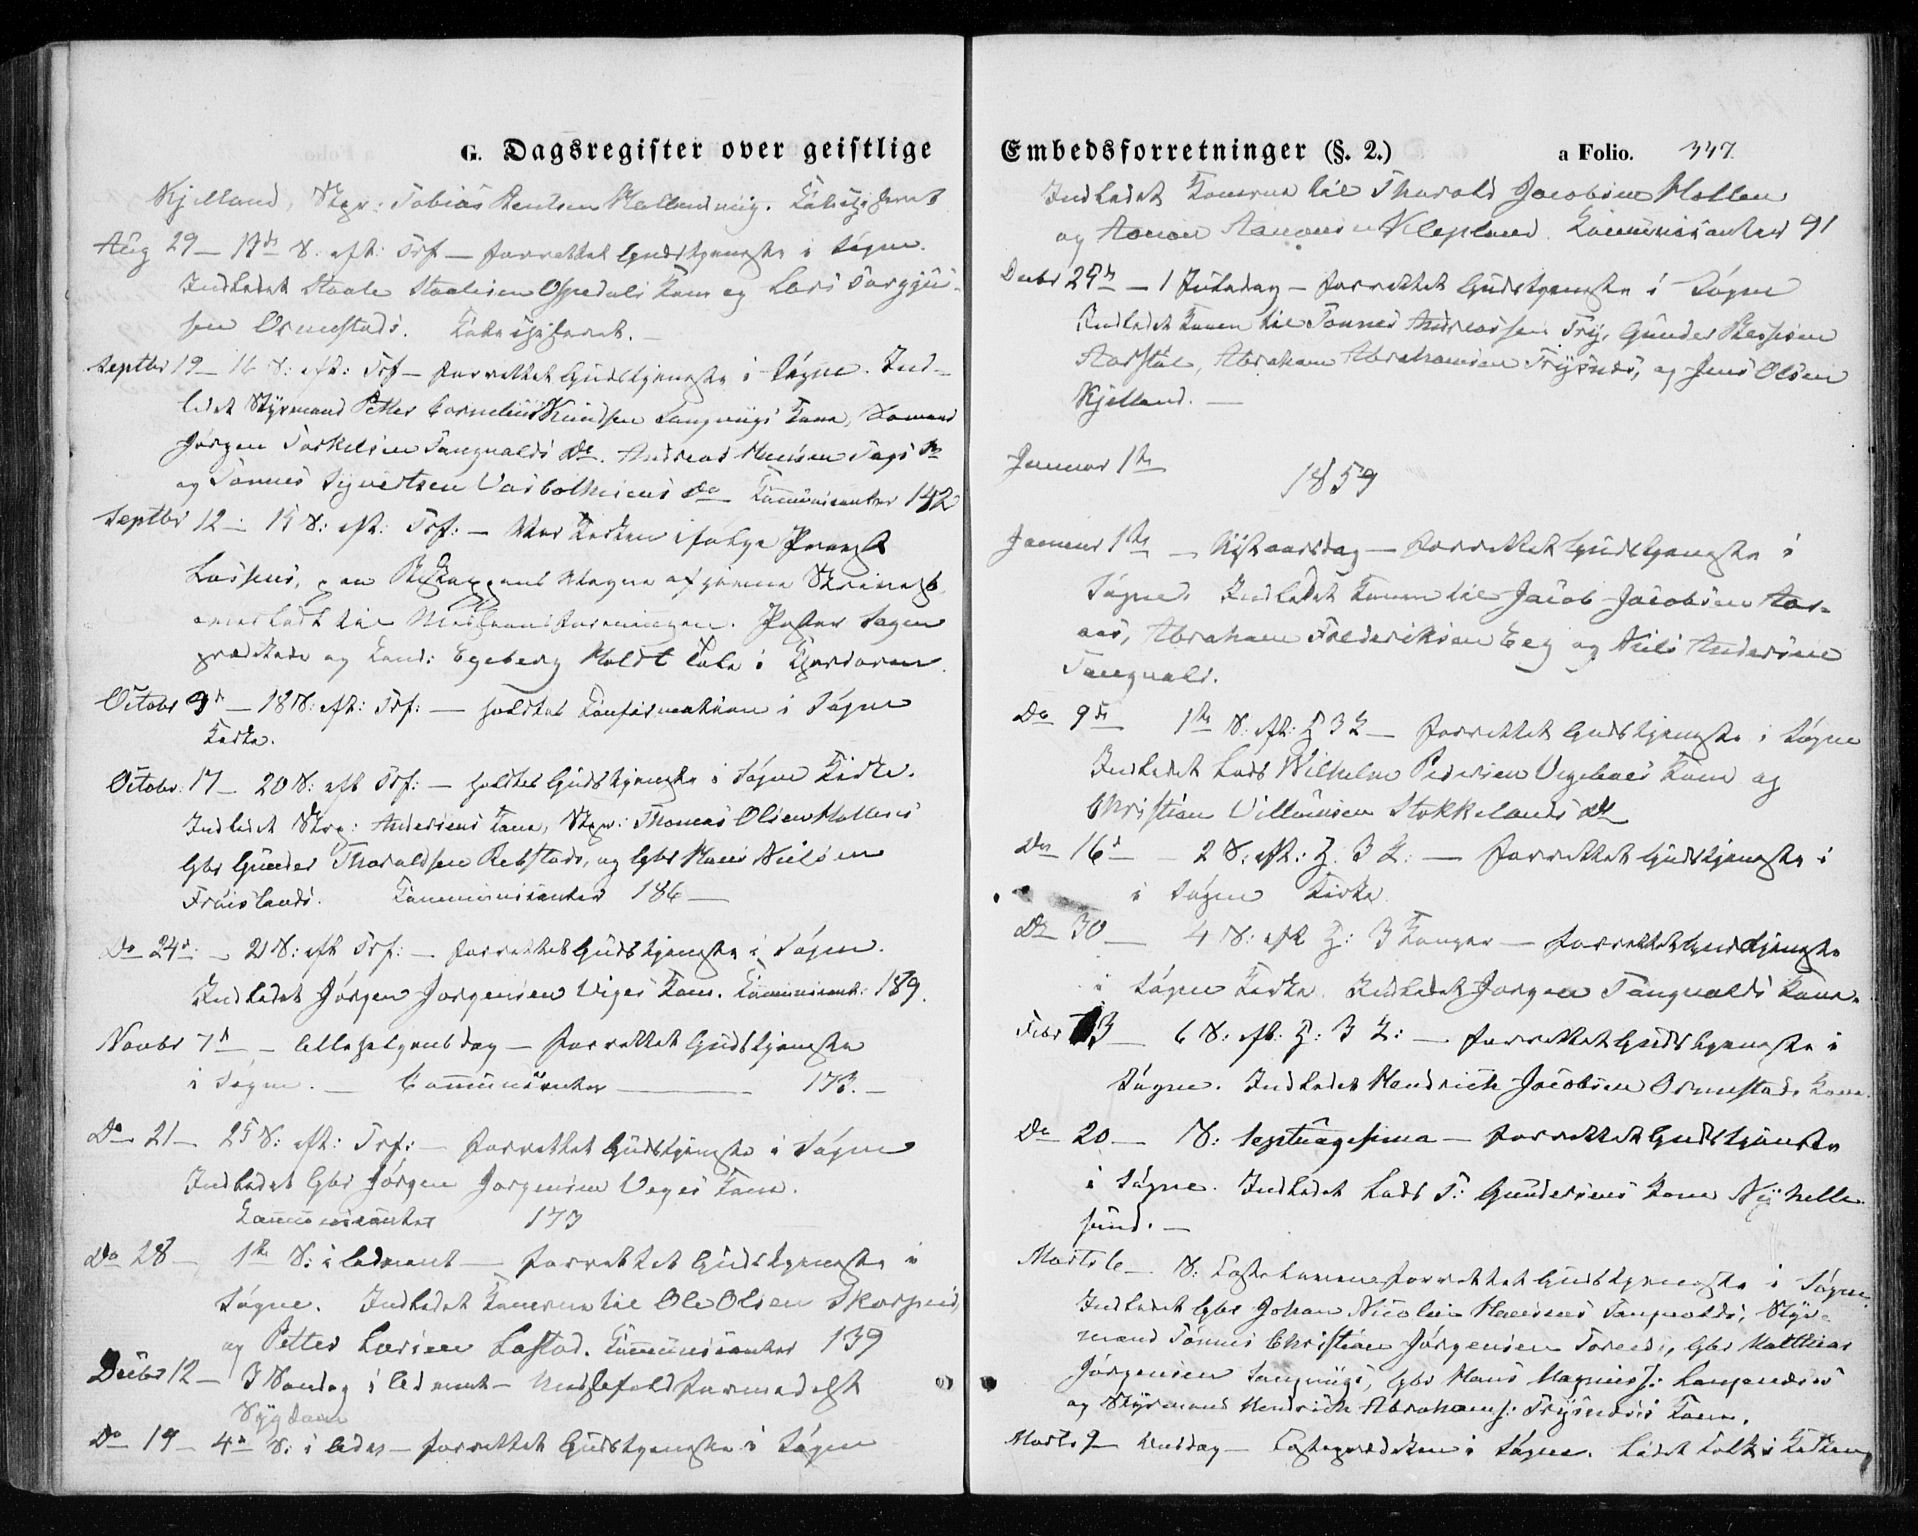 G. Dagsregister over geistlige
Kjelland, Skpr: Tobias Bentsen Kallandvig. Katechiseret
Aug 29 – 13de S: eft: Trf – forrettet Gudstjeneste i Søgne.
Indledet Staale Staalesen Ospedals Kone og Lars Torgju-
sen Ormestads. Katechiseret. –
Septbr 19 – 16 S: eft: Trf – forrettet Gudstjeneste i Søgne. Ind-
ledet Styrmand Petter Cornelius Knudsen Langvigs Kone,
Jørgen Torkelsen Tangvalds Do. Andreas Hansen Do
og Tønnes Sigvertsen Do Communicanter 142
Septbr 12 – 15 S: eft: Trf: – Var Kirken ifølge Provst
Lassens, paa
anerledt til Missionsforeningen. Pastor
prædikede og Cand: Egeberg Holdt Tale i Chordøren.
Octobr 3d – 18 S: eft: Trf: – holdtes Confirmation i Søgne
Kirke.
Octobr. 17 – 20 S: eft Trf: – holdtes Gudstjeneste i Søgne Kirke.
Indledet Skpr: Andersens Kone, Skpr: Thomas Olsen Hollens
Gbr Gunder Tharaldsen Repstads, og Gbr Hans Nielsen
Frøislands. Communicanter 186 –
Do 24d – 21 S: eft Trf: – forrettet Gudstjeneste i Søgne.
Indledet Jørgen Jørgensen Viges Kone. Communicant: 189.
Novbr 7d – Allehelgensdag – forrettet Gudstjeneste
i Søgne. – Communicanter – 173. –
Do 21 – 25 S: eft: Trf: – forrettet Gudstjeneste i Søgne
Indledet Gbr Jørgen Jørgensen Veges Kone.
Communicanter 173
Do 28 – 1ste S: i Advent – forrettet Gudstjeneste i
Søgne. Indledet Konerne til Ole Olsen
og Petter Larsen Lastad. Communicanter 139
Decbr 12 – 3 Søndag i Advent – Messefald formedelst
Sygdom
Do 19 – 4de S: i Adv – forrettet Gudstjeneste i Søgne
Embedsforretninger (§. 2.) a Folio. 347.
Indledet Konerne til Tharald Jacobsen Hollen
og Aanon Aanonsen Kleplund. Communicanter 91
Decbr 25de – 1 Juledag – forrettet Gudstjeneste i Søgne
Indledet Konen til Tønnes Andreassen Try, Gunder
Aarstøl, Abraham Abrahamsen Trysnes, og Jens Olsen
Kjelland. –
Januar 1ste
1859
Januar 1ste – Nytaarsdag – forrettet Gudstjeneste i
Søgne. Indledet Konen til Jacob Jacobsen Aar-
aas, Abraham Frederiksen Eeg og Niels Andersen
Tangvald.
Do 9de 1ste S: eft: H 3 K – forrettet Gudstjeneste i Søgne
Indledet Lods Wilhelm Pedersen Kone og
Christian Villumsen Stokkelands Do
Do 16d – 2 S: eft: H. 3 K: – forrettet Gudstjeneste i
i Søgne Kirke
Do 30 – 4 S: eft H: 3 Konger – forrettet Gudstjeneste
i Søgne Kirke. Indledet Jørgen Tangvalds Kone.
Febr 13 – 6 S. eft. H: 3 K: – forrettet Gudstjeneste i
Søgne. Indledet Hendrich Jacobsen Ormestads Kone.
Do 20 – S: Septuagesima – forrettet Gudstjeneste
i Søgne. Indledet Lods T: Gundersens Kone Ny Helle-
sund. –
Marts 6 – S: forrettet Gudstjeneste i Søgne.
Indledet Gbr Johan Nicolai Hansens Tangvalds, Styr-
mand Tønnes Christian Jørgensen, Gbr Matthias
Jørgensen Langvigs, Gbr Hans Magnus: Langenæs
og Styrmand Hendrich Abrahams: Trysnæs's Kone.
Marts 9 – Onsdag – Fasteprædiken i Søgne. Lidet Folk i Kirken